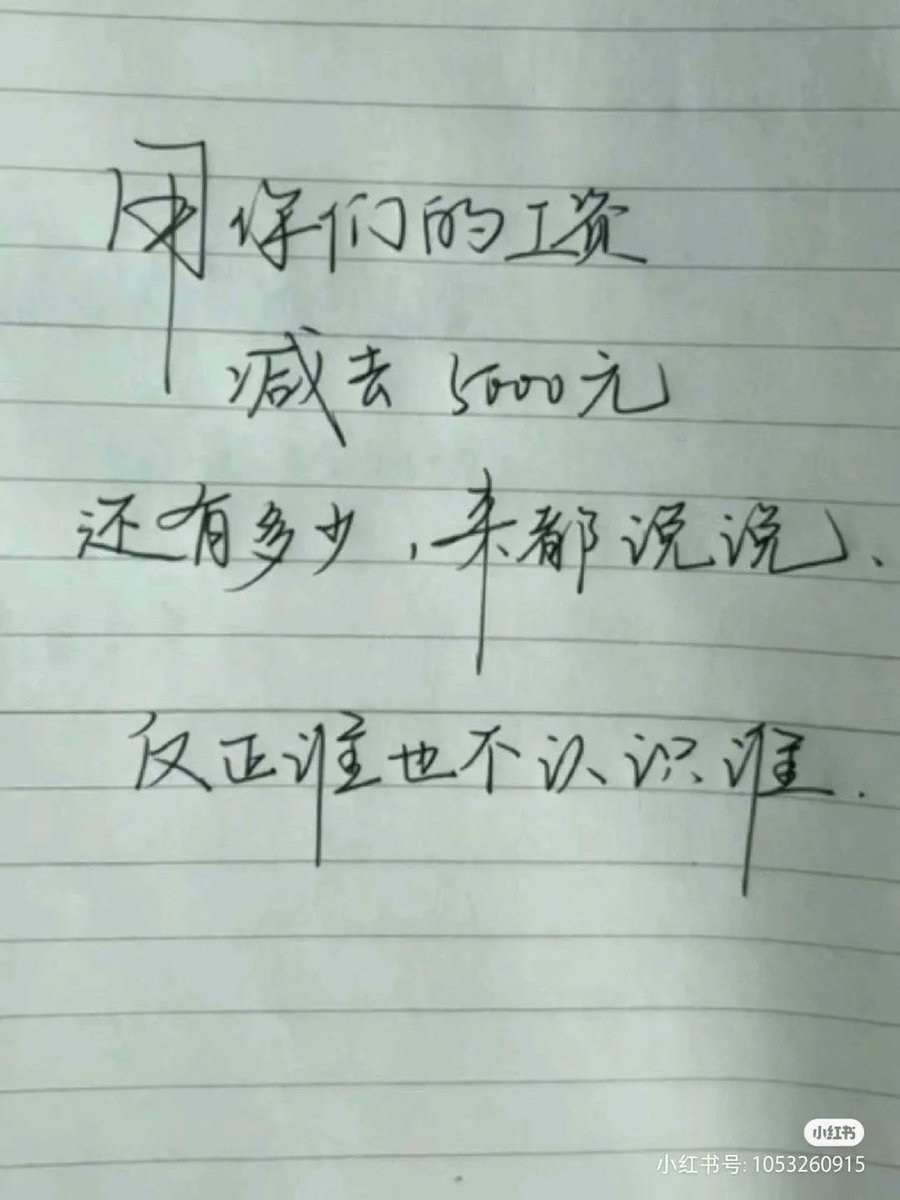 用你们的工资
减去5000元
还有多少,来都说说、
反正谁也不认识谁.
小红书
小红书号: 1053260915